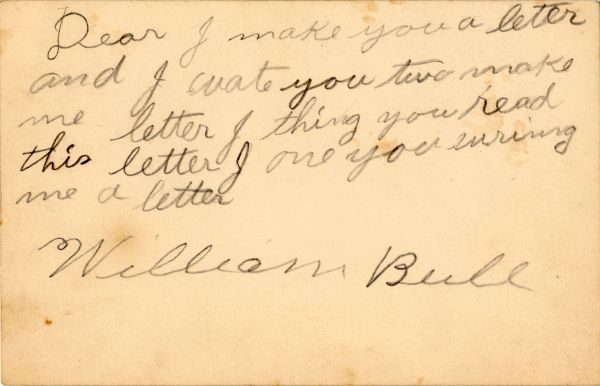 Dear I make you a leter
and I wate you two make
me letter I thing you read
this letter I one you wrining
me a letter
William Bull